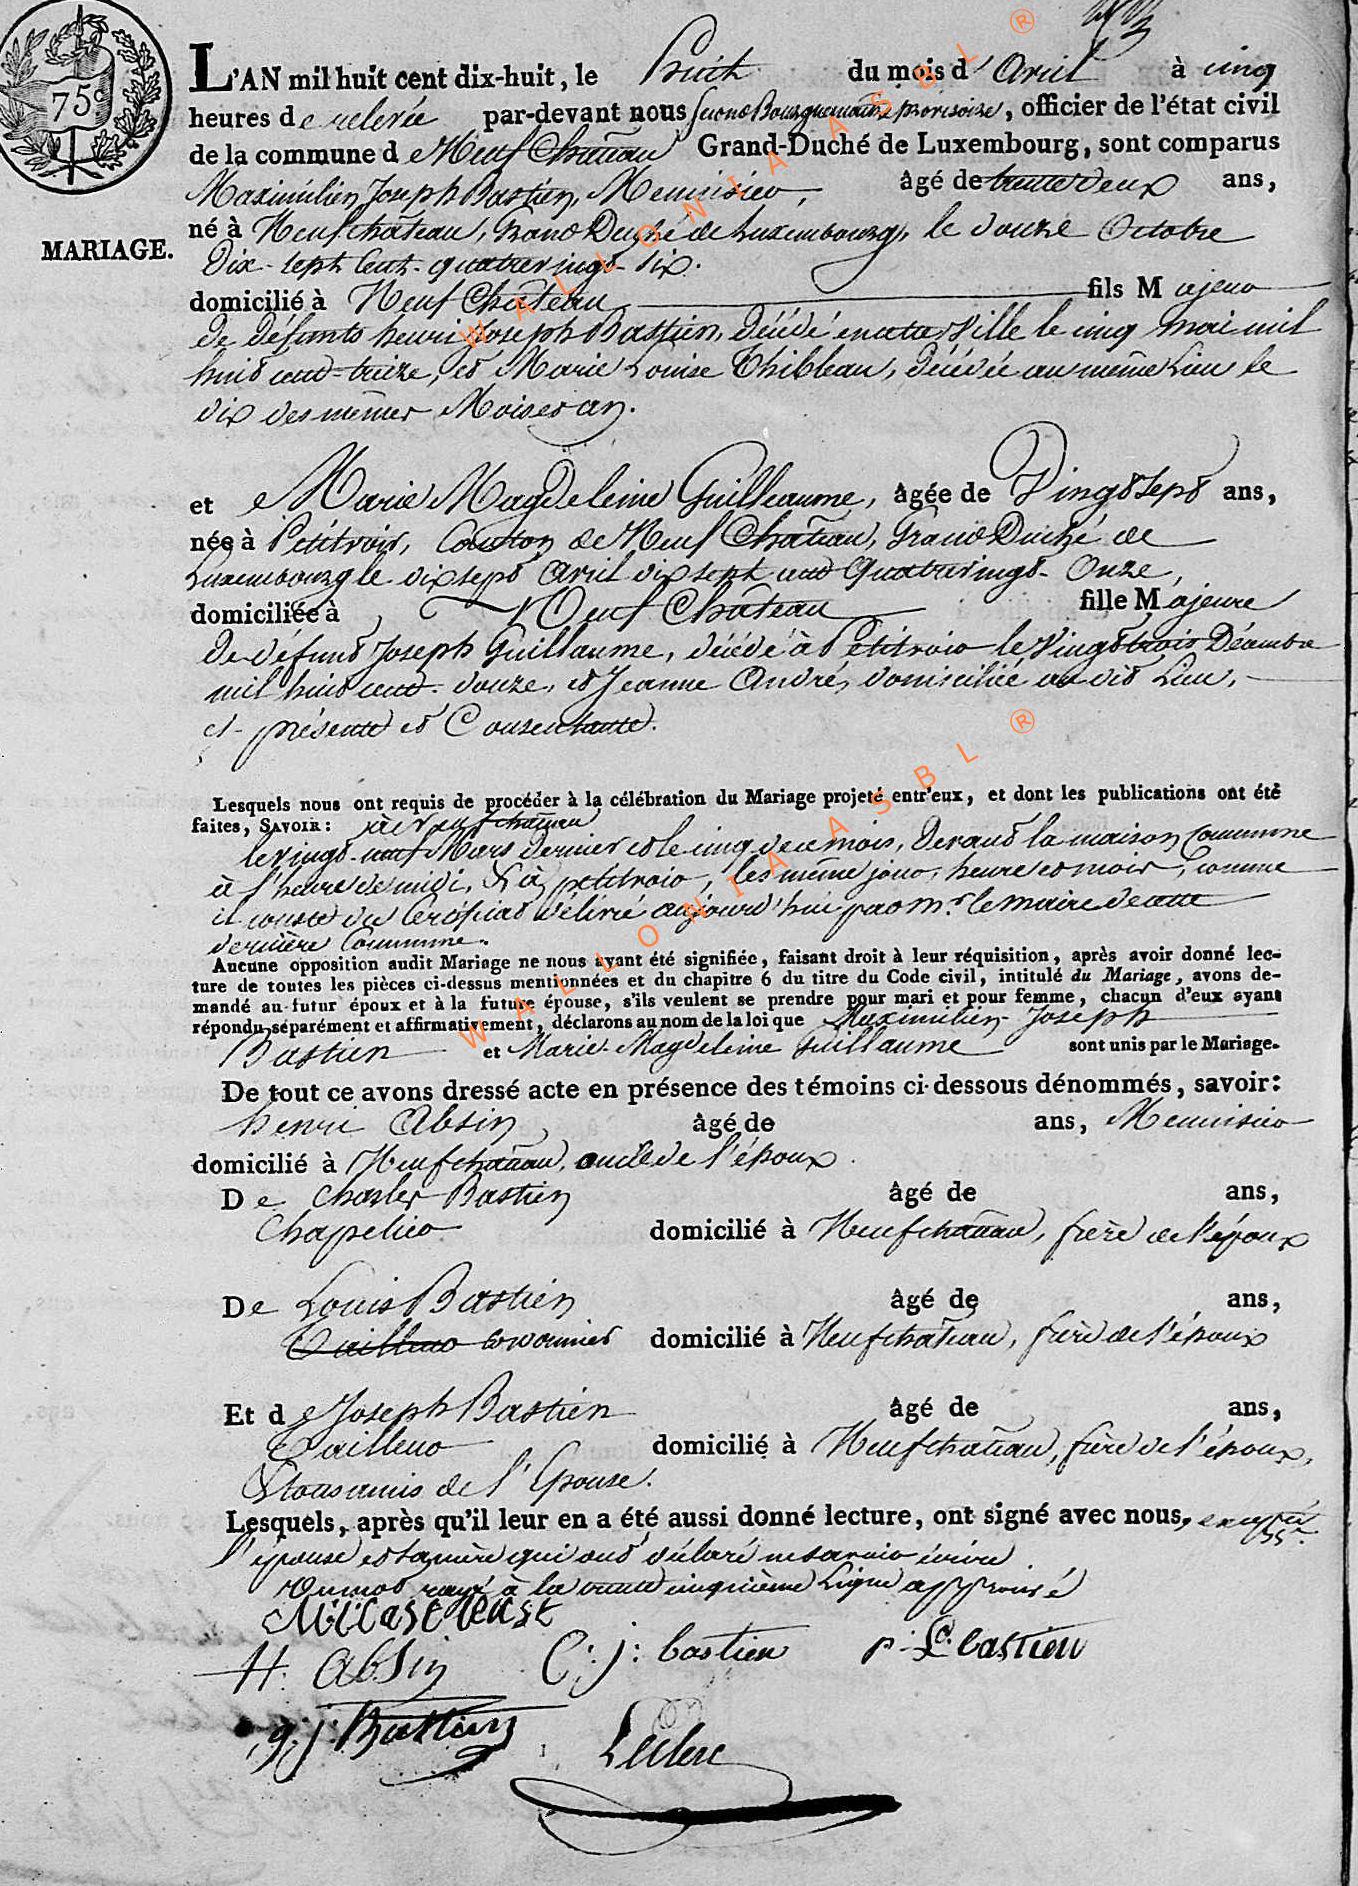 75c
L'AN mil huit cent dix-huit, le huit du mois d'avril à cinq
heures de relevée par-devant nous second Bourguemaitre provisoire, officier de l'état civil
de la commune de Neuf Château Grand-Duché de Luxembourg, sont comparus
Maximilien Joseph Bastien, Menuisier, âgé de trente deux ans,
MARIAGE.
né à Neufchâteau, Grand Duché de Luxembourg, le douze Octobre
Dix-sept Cent-quatrevingt-six.
domicilié à Neuf Château fils Majeur
de défunts henri joseph Bastien, décédé en cette Ville le cinq mai mil
huit cent-treize, et Marie Louise Thibleau, décédée au même Lieu le
dix des mêmes Mois et an.
et Marie Magdeleine Guilleaume, âgée de Vingt sept ans,
née à Petitvoir, Canton de Neuf Château, Grand Duché de
Luxembourg le dix sept Avril dix sept cent Quatrevingt-Onze,
domiciliée à Neuf Château fille Majeure
de défunt Joseph Guillaume, décédé à Petitvoir le Vingt trois Décembre
mil huit cent-douze, et Jeanne André, domiciliée au dit Lieu,
ci-présente et Consentante.
Lesquels nous ont requis de procéder à la célébration du Mariage projeté entr'eux, et dont les publications ont été
faites, SAVOIR: à Neufchâteau
le vingt-neuf Mars dernier et le cinq de ce mois, devant la maison Commune
à l'heure de midi, & à petitvoir, les même jour, heure et mois, comme
il conste du Certificat délivré aujourd'hui par Mr. le maire de cette
dernière Commune.
Aucune opposition audit Mariage ne nous ayant été signifiée, faisant droit à leur réquisition, après avoir donné lec-
ture de toutes les pièces ci-dessus mentionnées et du chapitre 6 du titre du Code civil, intitulé du Mariage, avons de-
mandé au futur époux et à la future épouse, s'ils veulent se prendre pour mari et pour femme, chacun d'eux ayant
répondu séparément et affirmativement, déclarons au nom de la loi que Maximilien-Joseph
Bastien et Marie-Magdeleine Guillaume sont unis par le Mariage.
De tout ce avons dressé acte en présence des témoins ci-dessous dénommés, savoir:
henri Absin âgé de ans, Menuisier
domicilié à Neufchateau, oncle de l'époux.
De Charles Bastien âgé de ans,
Chapelier domicilié à Neufchateau, frère de l'époux
De Louis Bastien âgé de ans,
Tailleur cordonnier domicilié à Neufchâteau, frère de l'époux
Et de Joseph Bastien âgé de ans,
Tailleur domicilié à Neufchateau, frère de l'époux,
& tous amis de l'Epouse.
Lesquels, après qu'il leur en a été aussi donné lecture, ont signé avec nous, excepté
l'épouse et sa mère qui ont déclaré ne savoir écrire.
Un mot rayé à la cinquième Ligne approuvé
H. absin C: j: bastien p: L: bastien
g: j: Bastien Leclerc
WALLONIA ASBL ®
WALLONIA ASBL ®